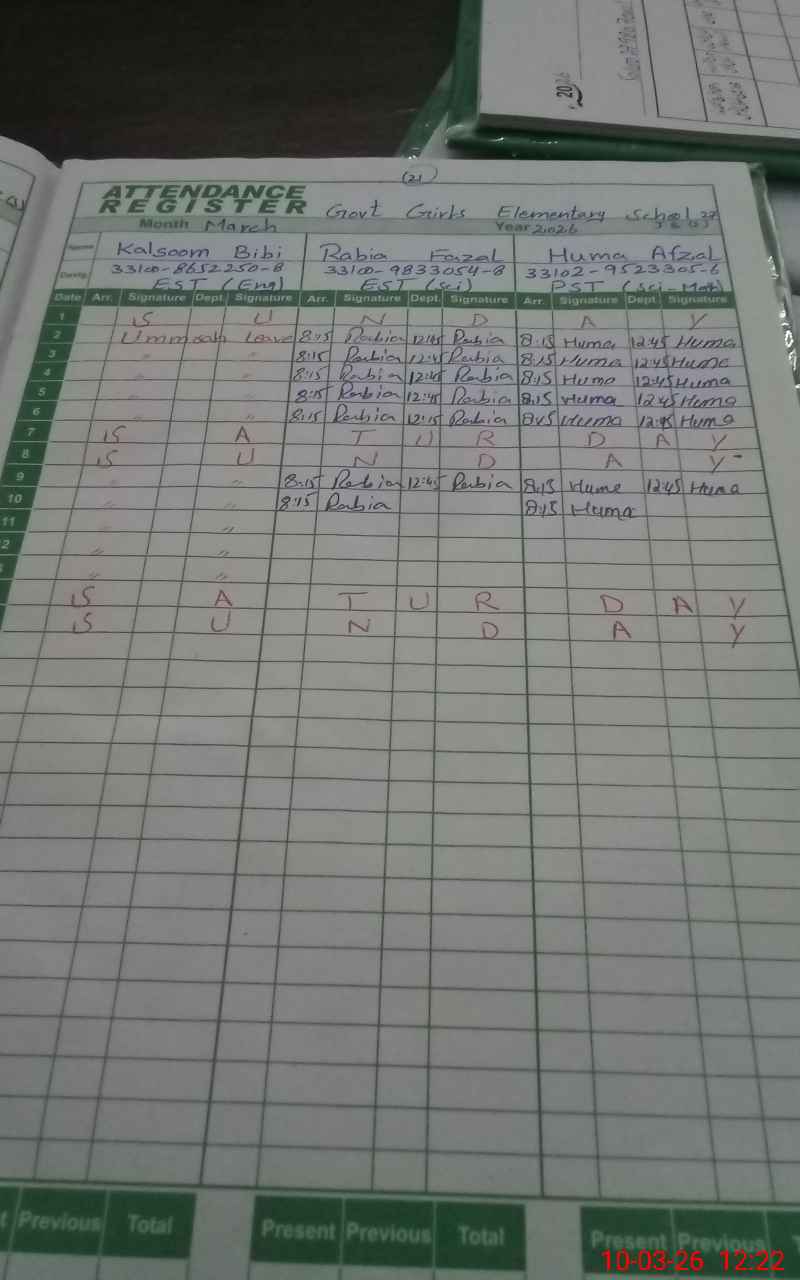 2026
(21)
ATTENDANCE
REGISTER Govt Girls Elementary School 27
Month March Year 2026
Name Kalsoom Bibi Rabia Fazal Huma Afzal
33100-8652250-8 33100-9833054-8 33102-9523305-6
Desig. EST (Eng) EST (Sci) PST (Sci-Math)
Date Arr. Signature Dept. Signature Arr. Signature Dept. Signature Arr. Signature Dept. Signature
1 S U N D A Y
2 Ummrah Leave 8:15 Rabia 12:45 Rabia 8:15 Huma 12:45 Huma
3 " " 8:15 Rabia 12:45 Rabia 8:15 Huma 12:45 Huma
4 " " 8:15 Rabia 12:45 Rabia 8:15 Huma 12:45 Huma
5 " " 8:15 Rabia 12:45 Rabia 8:15 Huma 12:45 Huma
6 " " 8:15 Rabia 12:15 Rabia 8:15 Huma 12:45 Huma
7 S A T U R D A Y
8 S U N D A Y
9 " " 8:15 Rabia 12:45 Rabia 8:15 Huma 12:45 Huma
10 " " 8:15 Rabia 8:15 Huma
11 " "
2 " "
" "
S A T U R D A Y
S U N D A Y
Previous Total Present Previous Total Present Previous
10-03-26 12:22